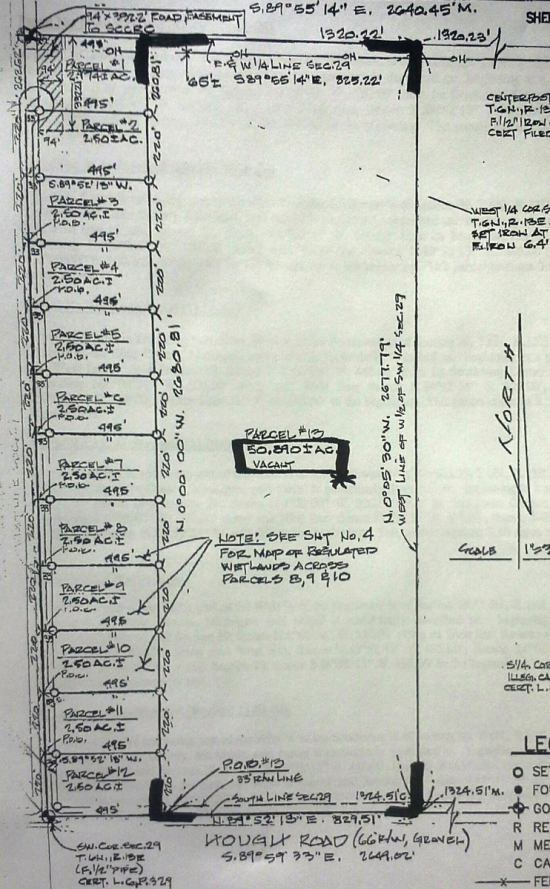 S.89°55'14" E. 2640.45'M.
94'x332.2' ROAD EASEMENT
TO SCCRC
1320.22'
1320.23'
495'
OH
OH
OH
E.&W 1/4 LINE SEC. 29
S 89°55'14"E. 825.22'
65'±
PARCEL #1
2.974± AC.
495'
94'
PARCEL #2
2.50± AC.
495'
S.89°52'13" W.
PARCEL #3
2.50 AC.±
P.O.B.
495'
PARCEL #4
2.50 AC.±
P.O.B.
495'
PARCEL #5
2.50 AC.±
P.O.B.
495'
PARCEL #6
2.50 AC.±
P.O.B.
495'
PARCEL #7
2.50 AC.±
P.O.B.
495'
PARCEL #8
2.50 AC.±
P.O.B.
495'
PARCEL #9
2.50 AC.±
P.O.B.
495'
PARCEL #10
2.50 AC.±
P.O.B.
495'
PARCEL #11
2.50 AC.±
P.O.B.
495'
S.89°52'13" W.
PARCEL #12
2.50 AC.±
495'
220'
220'
220'
220'
220'
220'
220'
220'
220'
220'
220'
N 0°00'00" W. 2680.81'
PARCEL #13
50.890± AC.
VACANT
NOTE: SEE SHT NO. 4
FOR MAP OF REGULATED
WETLANDS ACROSS
PARCELS 8, 9 & 10
N. 0°05'30" W. 2677.79'
WEST LINE OF W 1/2 OF SW 1/4 SEC. 29
P.O.B. #13
33' R/W LINE
SOUTH LINE SEC 29
1324.51'C
1324.51'M.
N.89°52'13"E. 829.51'
HOUGH ROAD (66' R/W, GRAVEL)
S.89°59'33" E.
SW. COR. SEC. 29
T.6N., R.13E
(F. 1/2" PIPE)
CERT. L.6, P.329
SHE
CENTERPOST
T.6N., R.13
F. 1/2" IRON
CERT FILED
WEST 1/4 COR. S
T.6N., R.13E.
SET IRON AT
F.IRON 6.4'
NORTH
SCALE
S 1/4 COR
ILLEG. CA
CERT. L.
LEG
SET
FOU
GO
R RE
M ME
C CA
x FE